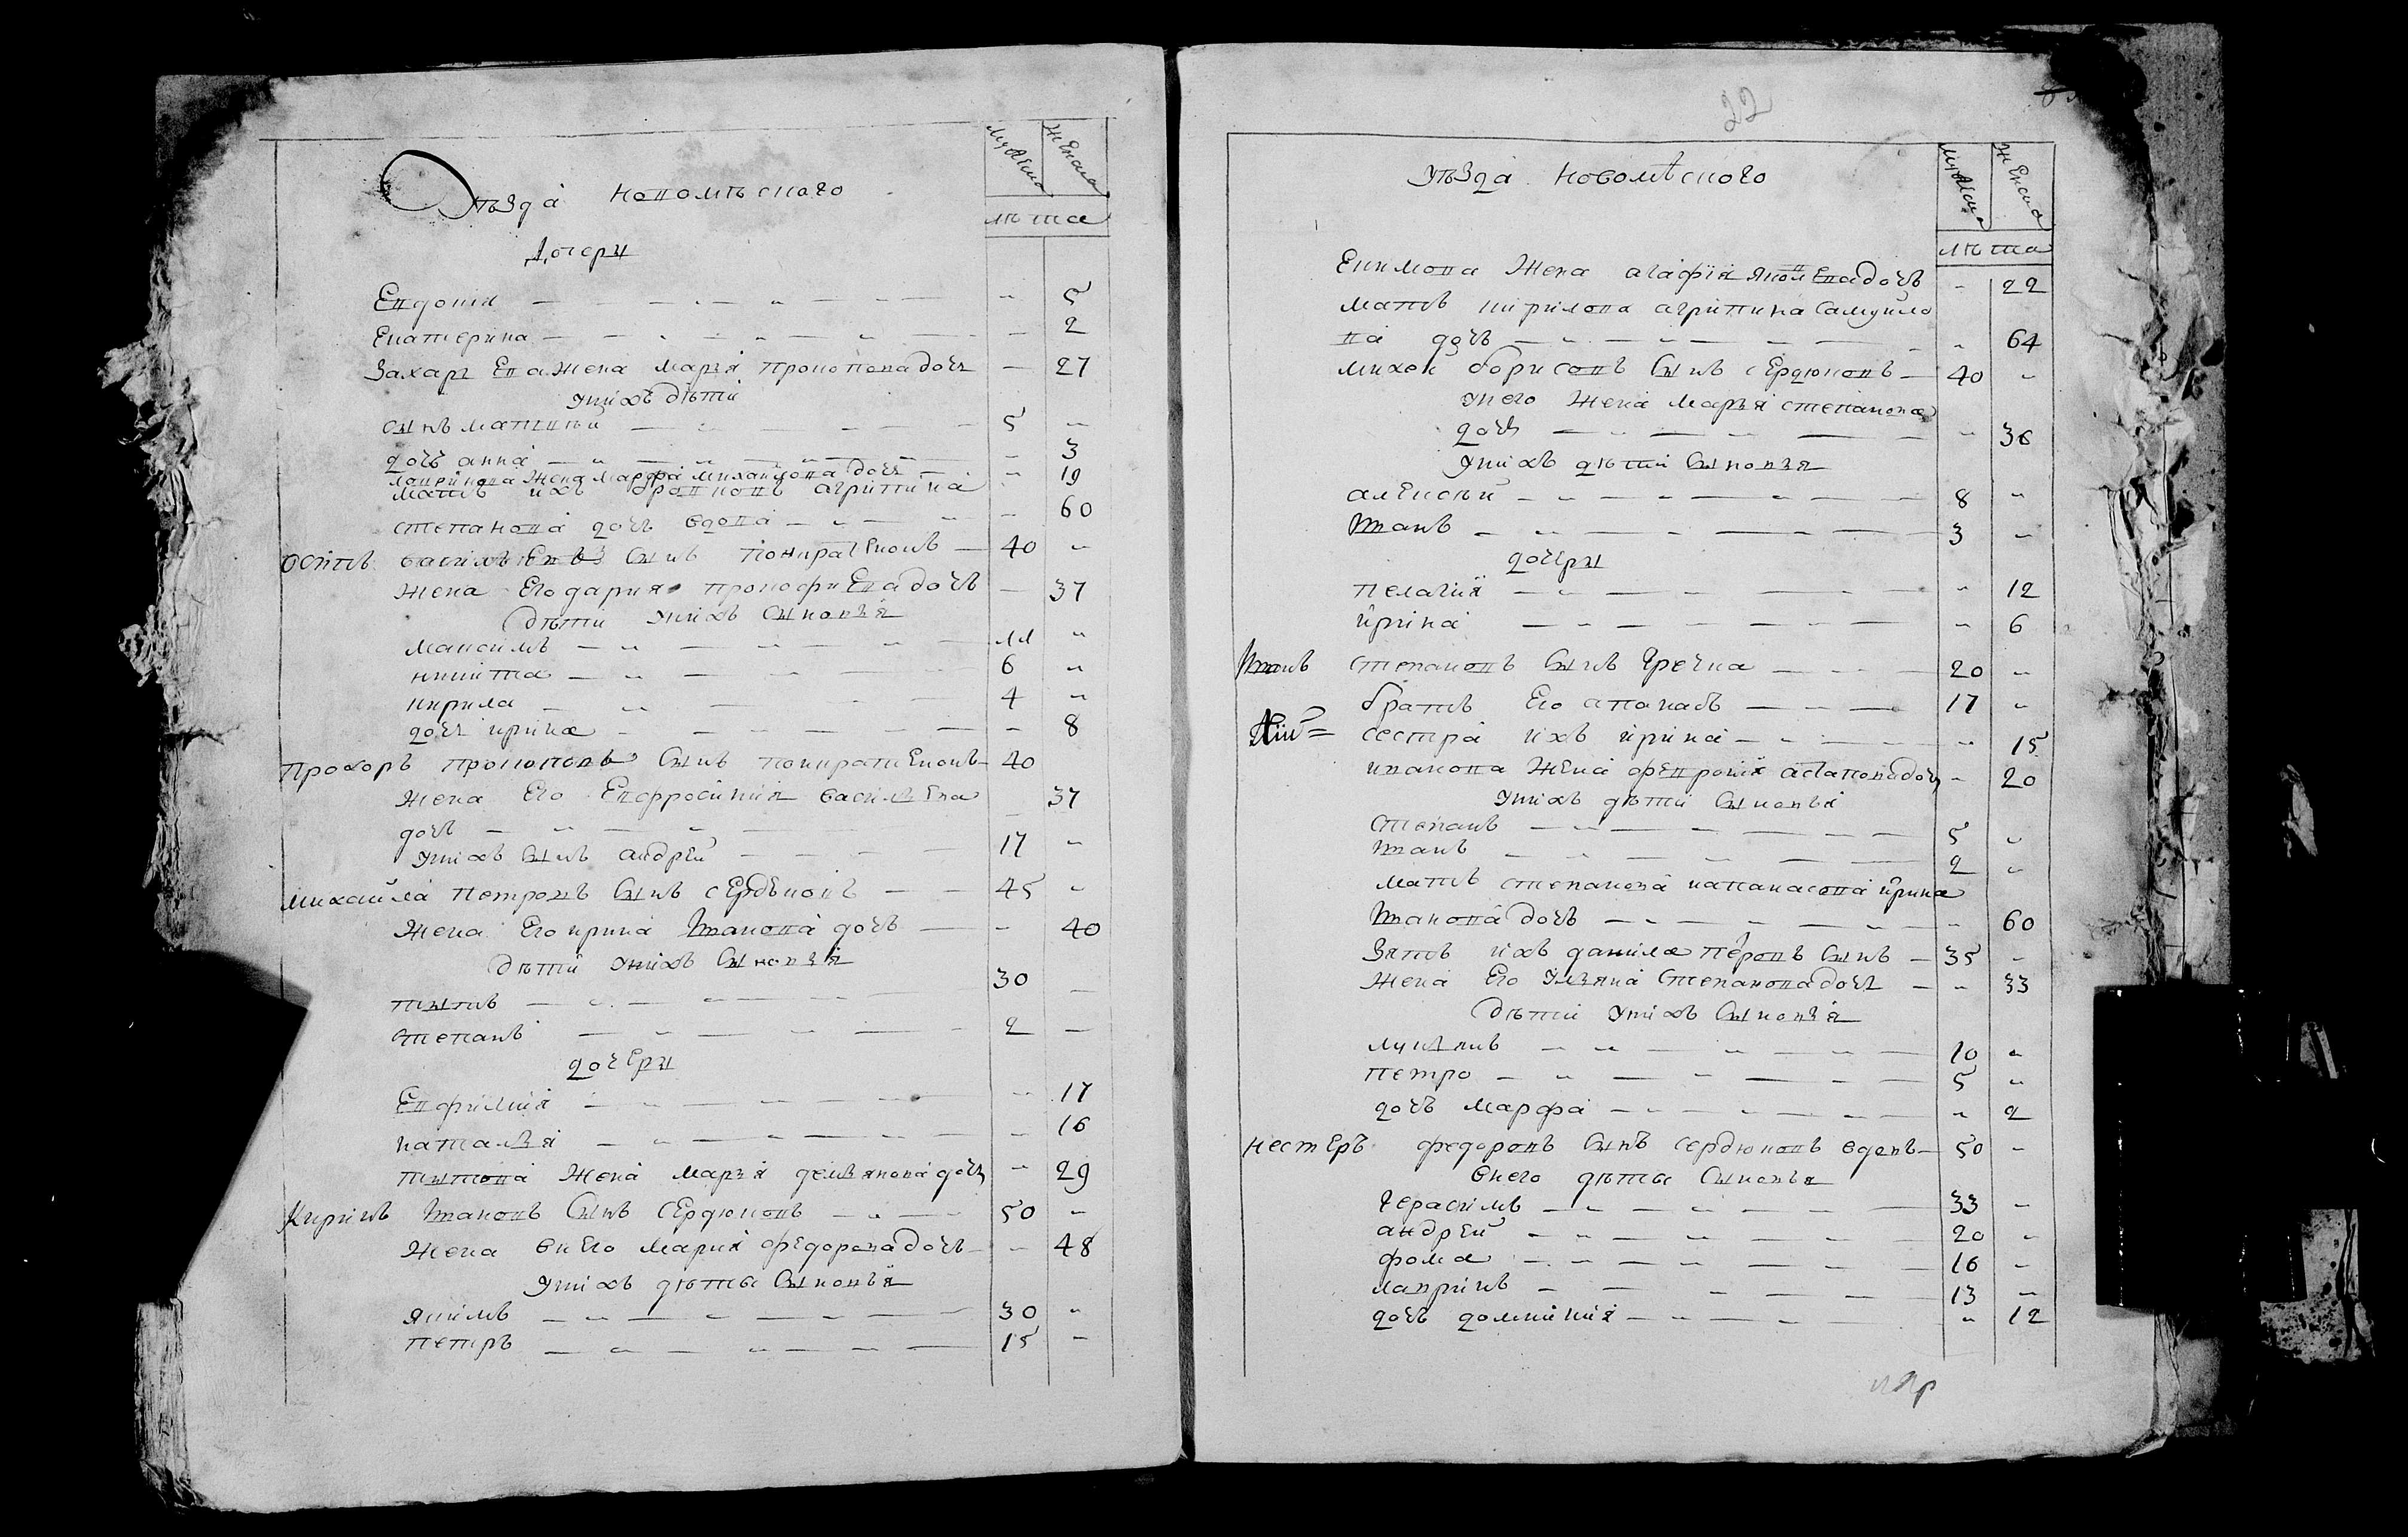 Мужеска Женска
Уѣзда новомѣского
лѣта
Дочери
Евдокия — — 5
Екатерина — — 2
Захарьева жена марья прокопова дочь — 27
у них дѣти
сынъ матвѣй — 5
дочь анна — 3
лаврѣнова жена марфа михайлова дочь — 19
мать ихъ агрипина
степанова дочь вдова — 60
осипъ василь Евъ сынъ понкратенковъ — 40
жена Его дария прокофиева дочь — 37
дѣти у нихъ сыновья
максимъ — 11
никита — 6
кирила — 4
дочь ирина — 8
прохоръ прокоповъ сынъ понкратенковъ — 40
жена Его Ефросиния василева — 37
дочь —
у нихъ сынъ андрей — 17
михайла петровъ сынъ сердюковъ — 45
жена Его ирина Иванова дочь — 40
дѣти у нихъ сыновья
титъ — 30
степанъ — 2
дочери
Евфимия — 17
наталья — 16
титова жена марья демьянова дочь — 29
Кирикъ Ивановъ сынъ сердюковъ — 50
жена в него мария федорова дочь — 48
у нихъ дѣти сыновья
якимъ — 30
петръ — 15
22
Мужеска Женска
уѣзда новомѣского
лѣта
Екимова жена агафия яковлева дочь — 22
мать кирилова агрипина самуйло
ва дочь — 64
михей борисовъ сынъ сердюковъ — 40
у него жена марья степанова
дочь — 36
у нихъ дѣти сыновья
алексѣй — 8
Иванъ — 3
дочери
пелагия — 12
ирина — 6
Иванъ степановъ сынъ гречка — 20
братъ Его апанасъ — 17
сестра ихъ ирина — 15
иванова жена феврония астапова дочь — 20
у нихъ дѣти сыновья
степанъ — 5
Иванъ — 2
мать степанова и апанасова ирина
Иванова дочь — 60
зять ихъ данила перовъ сынъ — 35
жена Его ульяна степанова дочь — 33
дѣти у нихъ сыновья
лукьянъ — 10
петро — 5
дочь марфа — 2
нестеръ федоровъ сынъ сердюковъ вдовъ — 50
в него дѣти сыновья
герасимъ — 33
андрей — 20
фома — 16
лаврикъ — 13
дочь домникия — 12